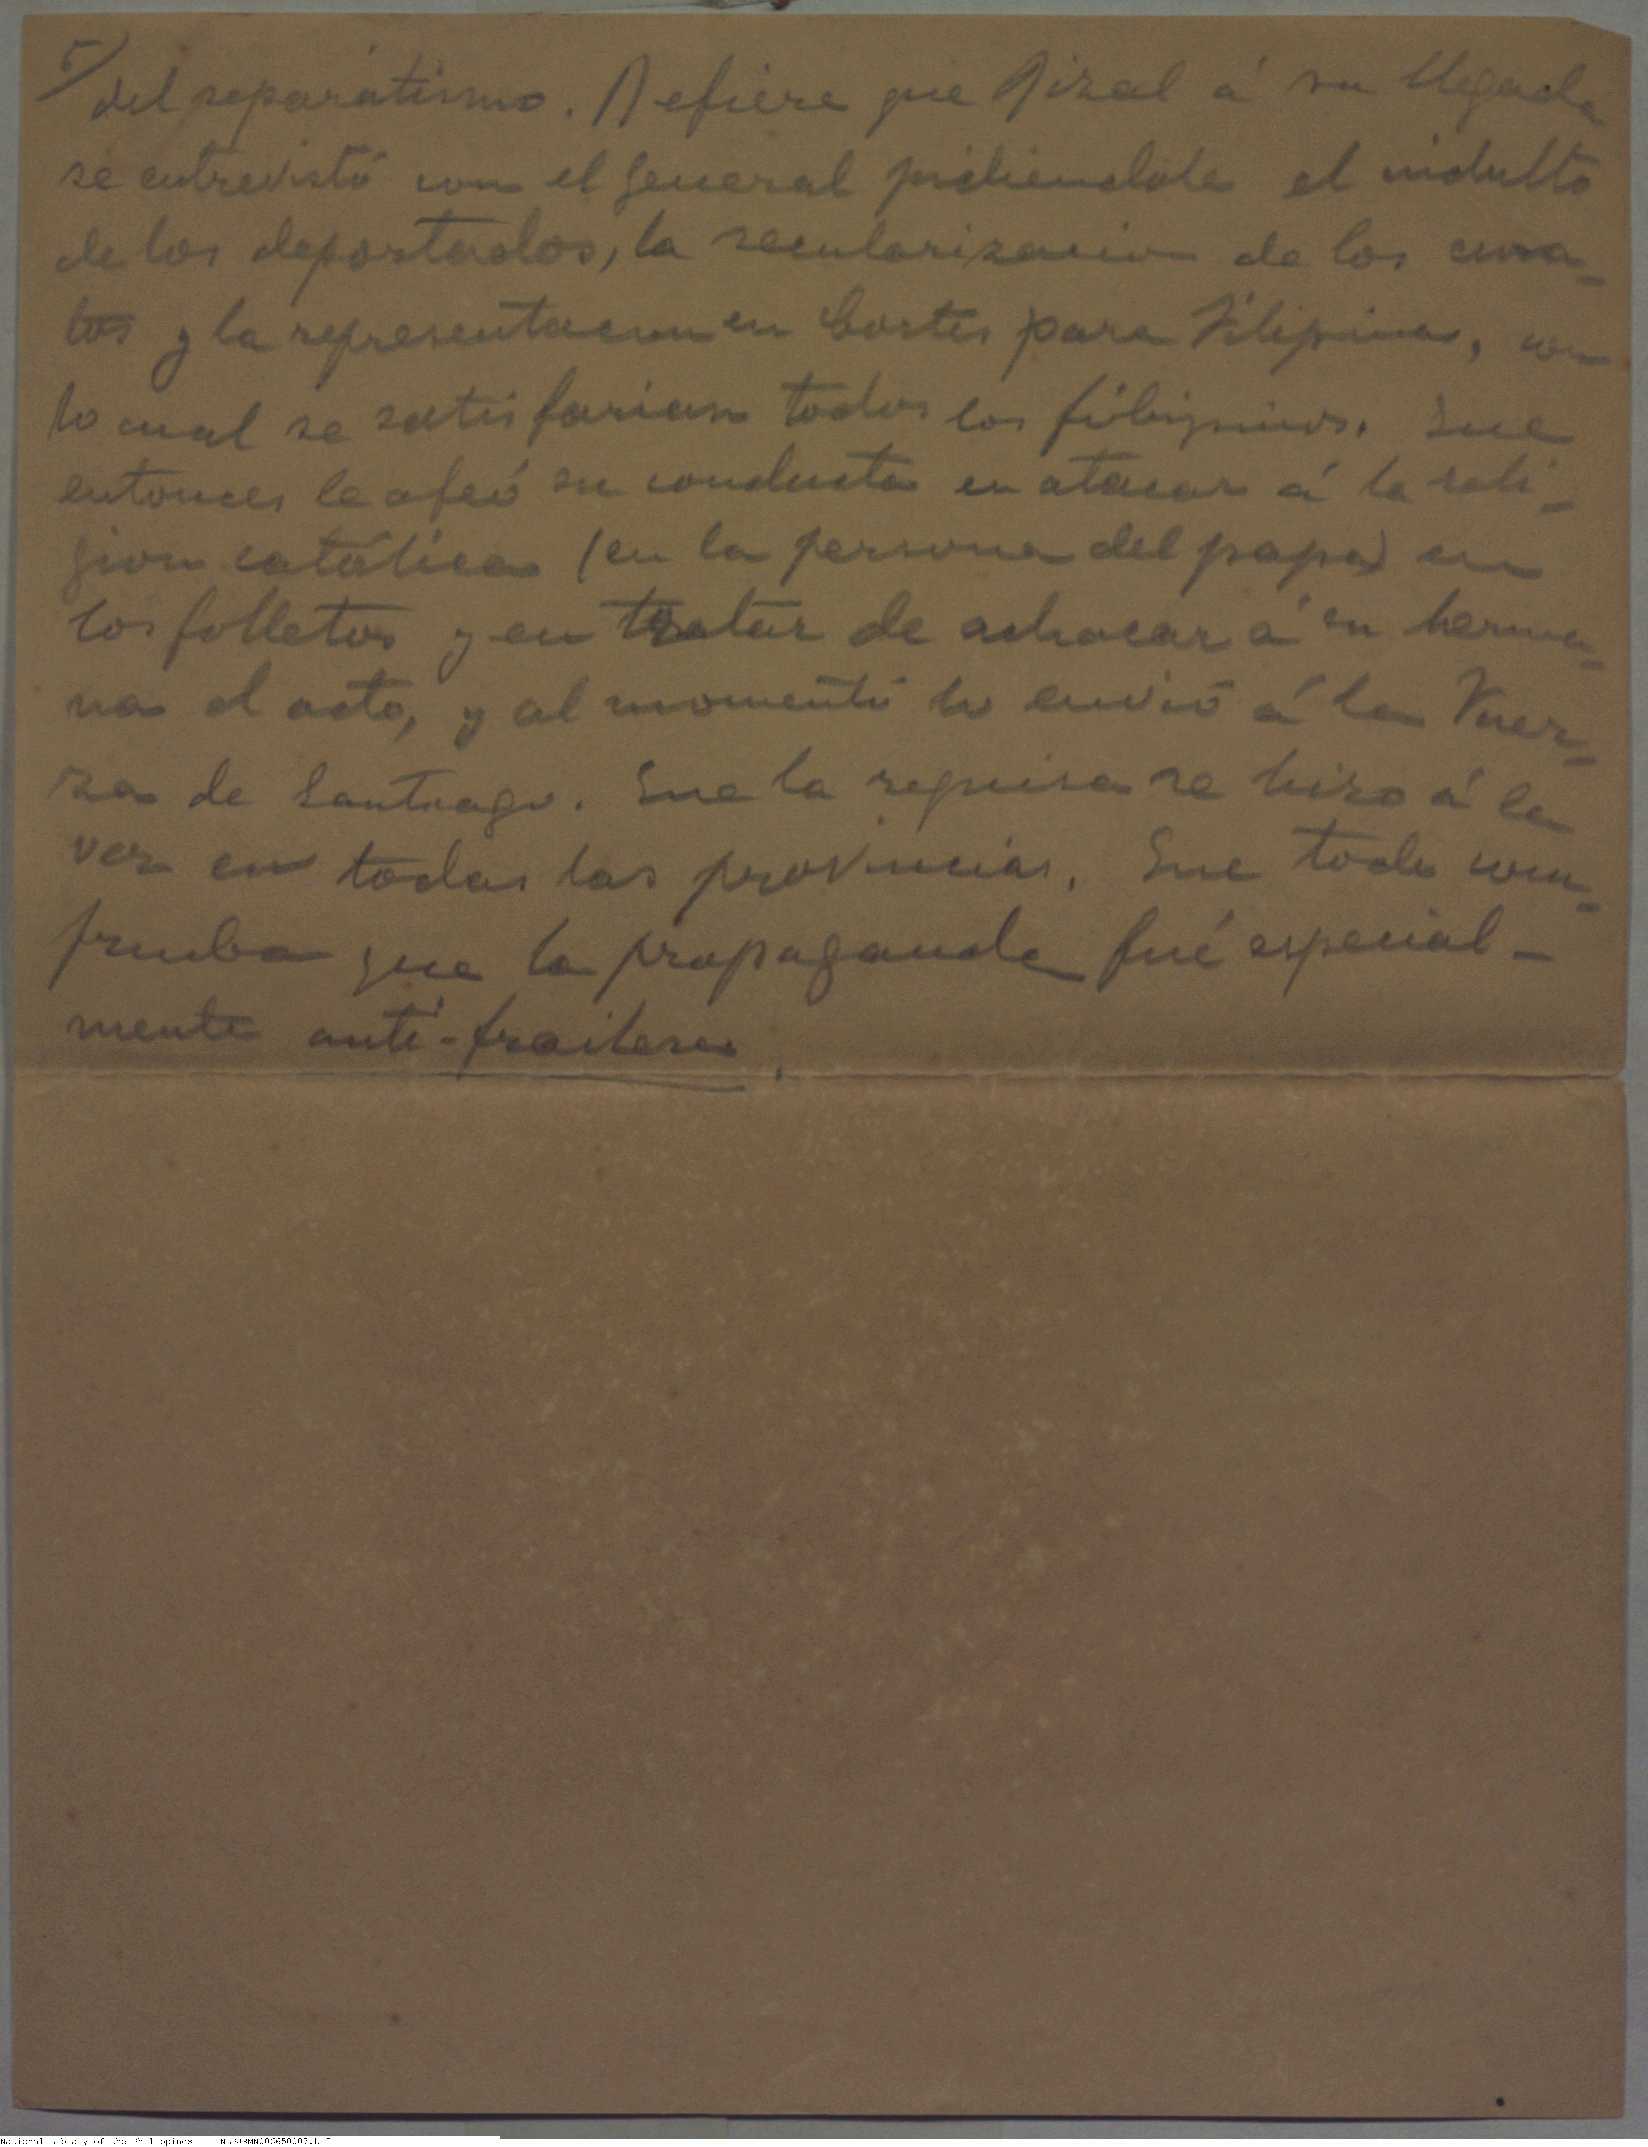 5/
del separatismo. Refiere que Rizal á su llegada
se entrevistó con el general pidiendole el indulto
de los deportados, la secularizacion de los cura-
tos y la representacion en Cortes para Filipinas, con
lo cual se satisfarian todos los filipinos. Que
entonces le afeó su conducta en atacar á la reli-
gion católica (en la persona del papa) en
los folletos y en tratar de achacar á su herma-
na el acto, y al momento lo envió á la Fuer-
za de Santiago. Que la requisa se hizo á la
vez en todas las provincias. Que todo com-
prueba que la propaganda fué especial-
mente anti-frailesca.
National Library of the Philippines